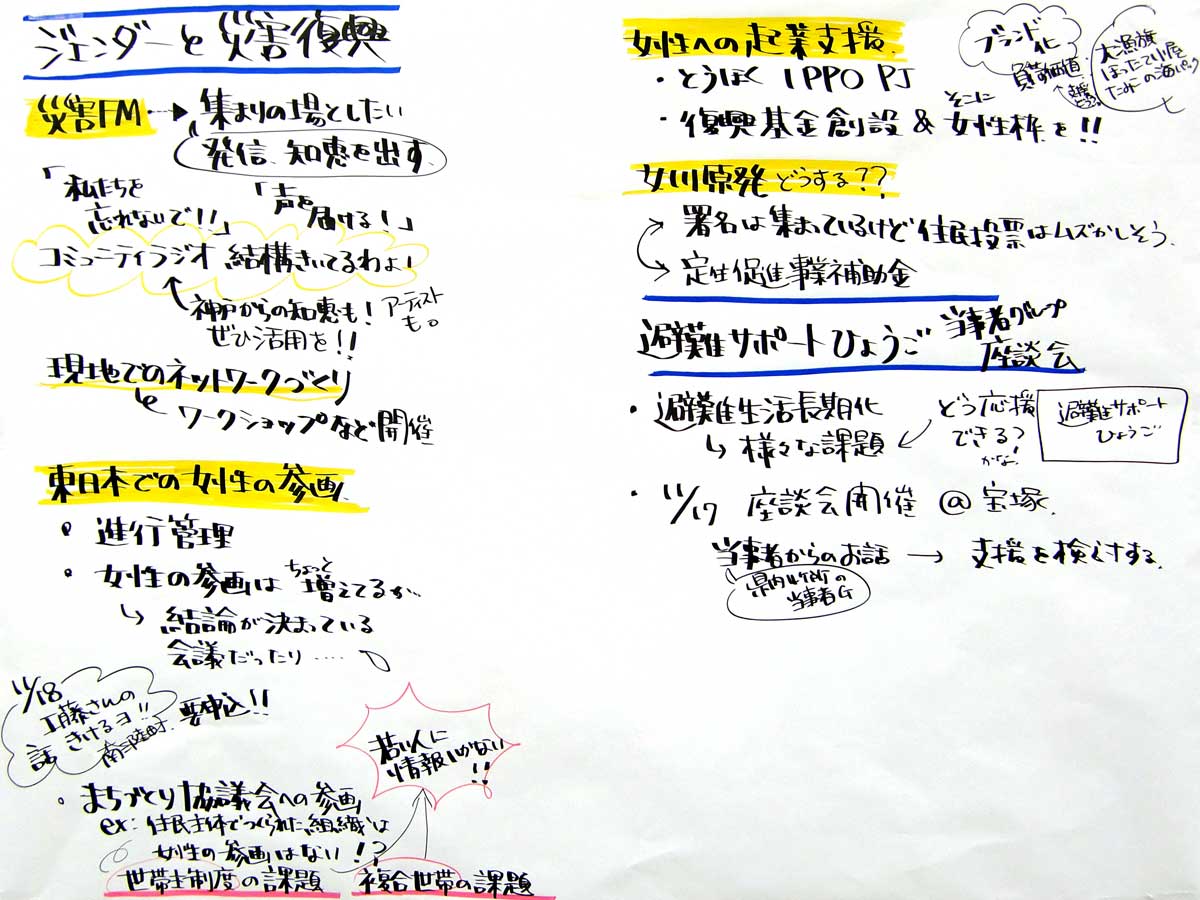 ジェンダーと災害復興
災害FM
集まりの場としたい
発信、知恵を出す
「私たちを
忘れないで!!」
「声を
届ける!」
コミュニティラジオ 結構きいてるわよ!
神戸からの知恵も!
ぜひ活用を!!
アーティスト
も。
現地でのネットワークづくり
ワークショップなど開催
東日本での女性の参画
・進行管理
・女性の参画は ちょっと 増えてるが
結論が決まっている
会議だったり……
11/18
工藤さんの
話 きけるヨ!!
南三陸町
要申込!!
若い人に
情報いかない
!!
・まちづくり協議会への参画
ex: 住民主体でつくられた組織は
女性の参画はない!?
世帯主制度の課題
複合世帯の課題
女性への起業支援
・とうほく IPPO PJ
・復興基金創設 & そこに 女性枠を!!
ブランド
化
付加価値
大漁旗
ほったて小屋
女川原発どうする??
署名は集まっているけど住民投票はムズかしそう。
定住促進事業補助金
避難サポートひょうご
当事者グループ
座談会
・避難生活長期化
様々な課題
どう応援
できる?
かな。
避難サポート
ひょうご
・11/17 座談会開催 @ 宝塚
当事者からのお話 → 支援を検討する。
県内4ヶ所の
当事者G